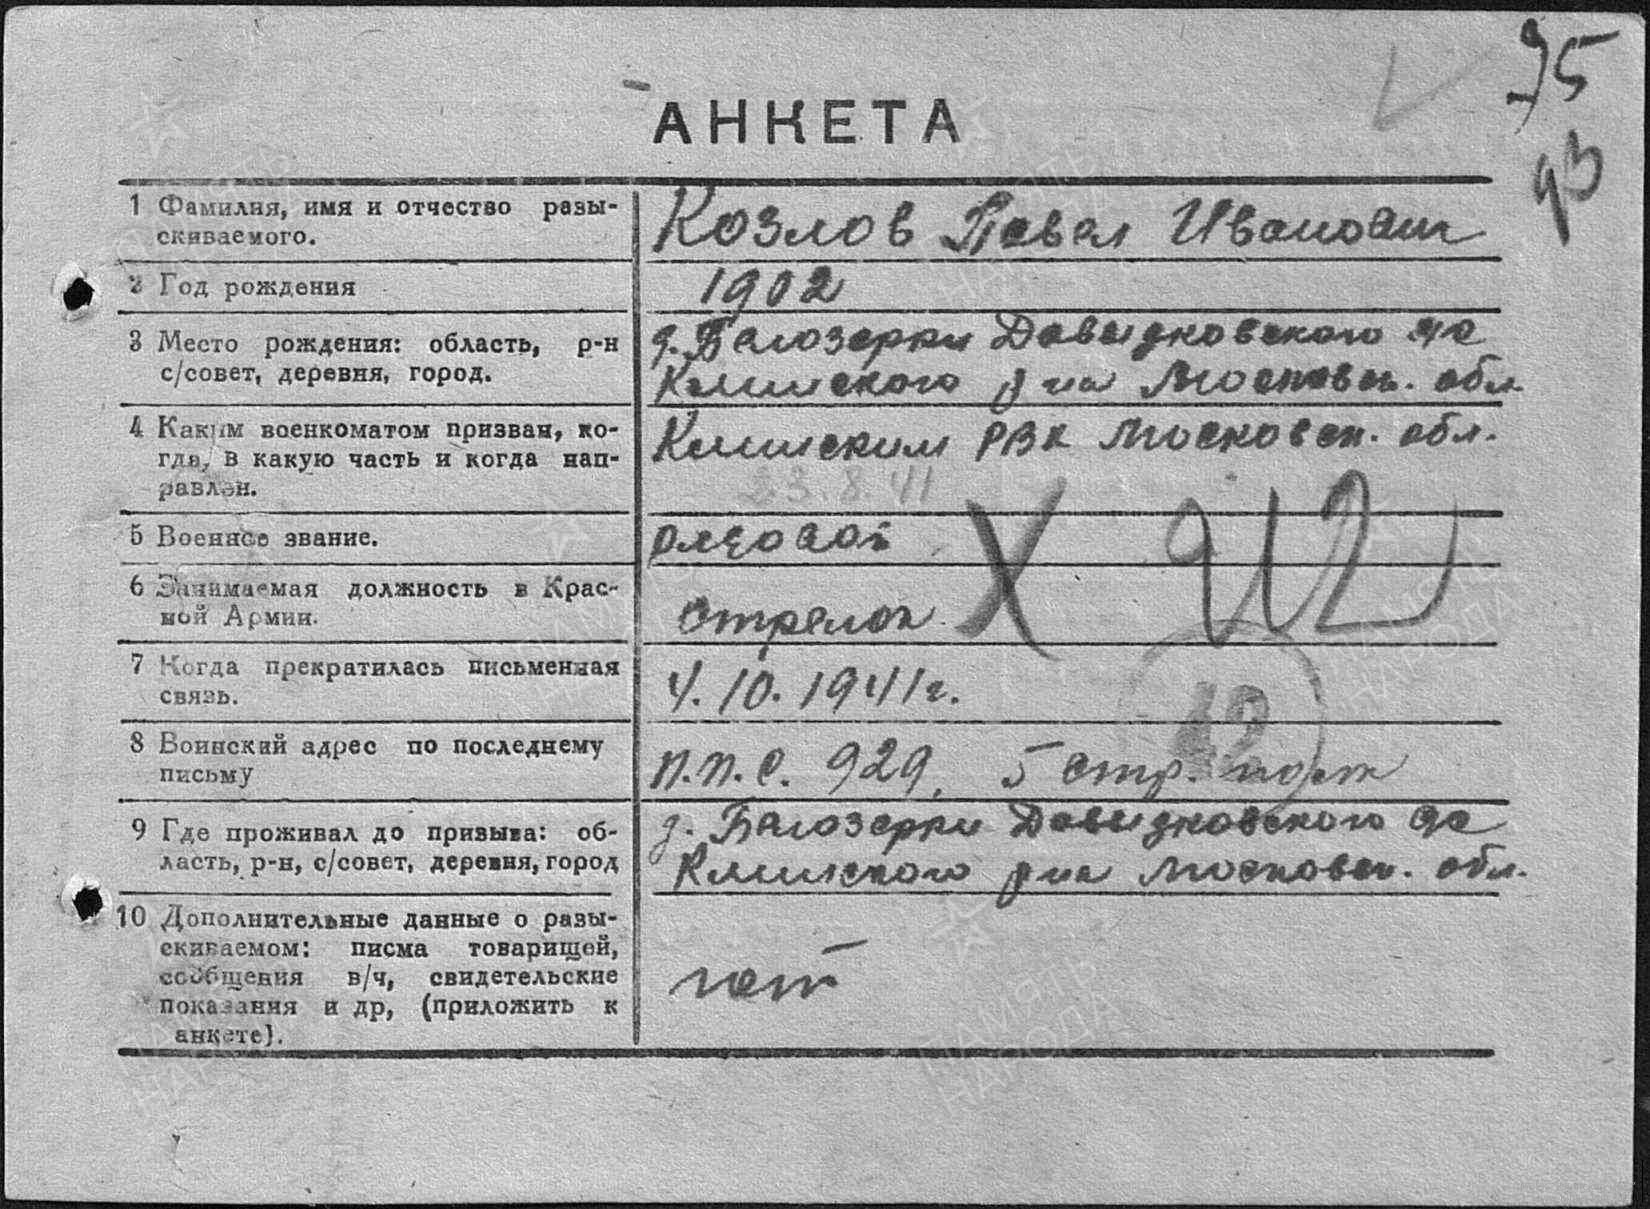 95
93
АНКЕТА
1 Фамилия, имя и отчество разы-
скиваемого.
Козлов Павел Иванович
2 Год рождения
1902
3 Место рождения: область, р-н
с/совет, деревня, город.
д. Белозерки Давыдковского с/с
Клинского р-на Московск. обл.
4 Каким военкоматом призван, ко-
гда, в какую часть и когда нап-
равлен.
Клинским РВК Московск. обл.
23.8.41
5 Военнсе звание.
рядовой
6 Занимаемая должность в Крас-
ной Армии.
стрелок
Х 42
7 Когда прекратилась письменная
связь.
4.10.1941г.
12
8 Воинский адрес по последнему
письму
п.п.с. 929, 5 стр. полк
9 Где проживал до призыва: об-
ласть, р-н, с/совет, деревня, город
д. Белозерки Давыдковского с/с
Клинского р-на Московск. обл.
10 Дополнительные данные о разы-
скиваемом: писма товарищей,
сообщения в/ч, свидетельские
показания и др, (приложить к
анкете).
нет
ПАМЯТЬ
НАРОДА